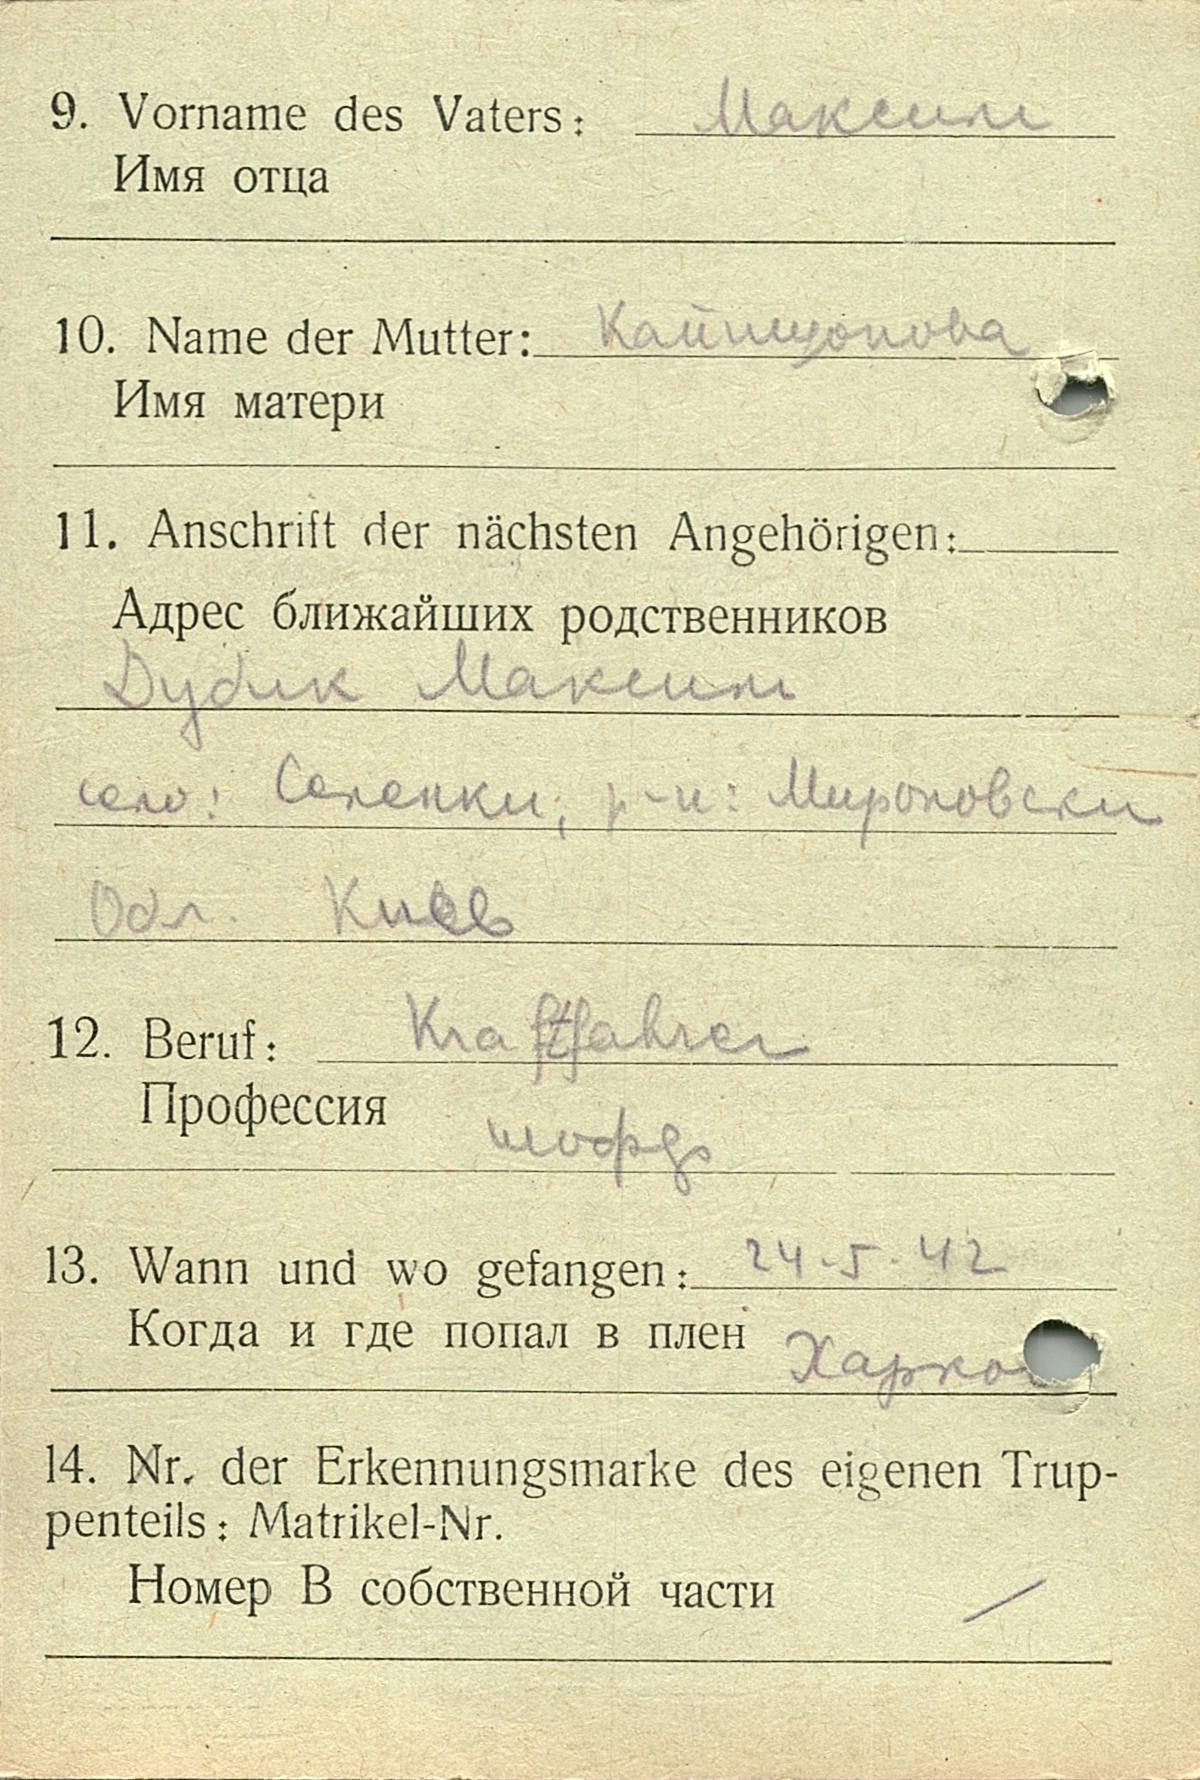 9. Vorname des Vaters: Максим
Имя отца
10. Name der Mutter:
Имя матери
11. Anschrift der nächsten Angehörigen:
Адрес ближайших родственников
Дубик Максим
село: Селенки, р-н: Мироновски
Обл. Киев
12. Beruf: Kraftfahrer
Профессия
шофер
13. Wann und wo gefangen: 24.5.42
Когда и где попал в плен Харков
14. Nr. der Erkennungsmarke des eigenen Trup-
penteils: Matrikel-Nr.
Номер В собственной части /